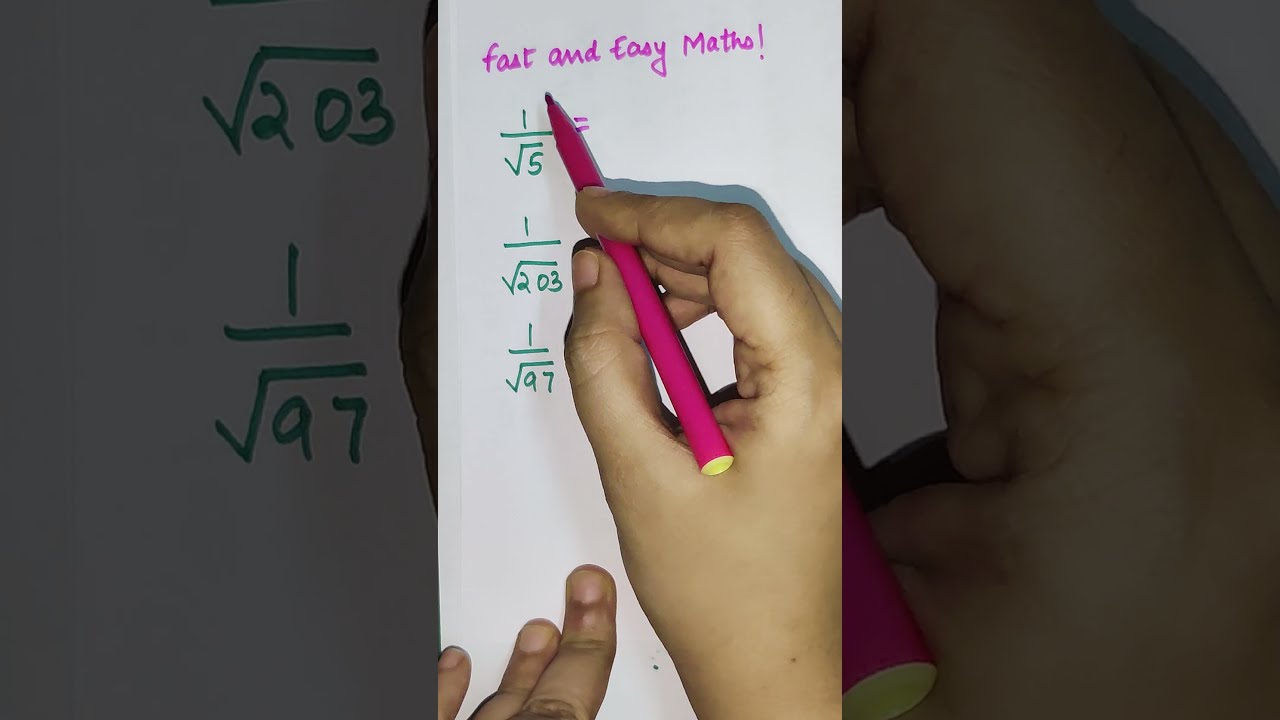 Fast and Easy Maths!
1
√5 =
1
√203
1
√97